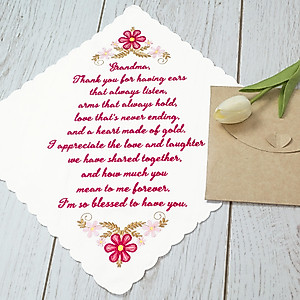 Grandma,
Thank you for having ears
that always listen,
arms that always hold,
love that's never ending,
and a heart made of gold.
I appreciate the love and laughter
we have shared together,
and how much you
mean to me forever,
I'm so blessed to have you.